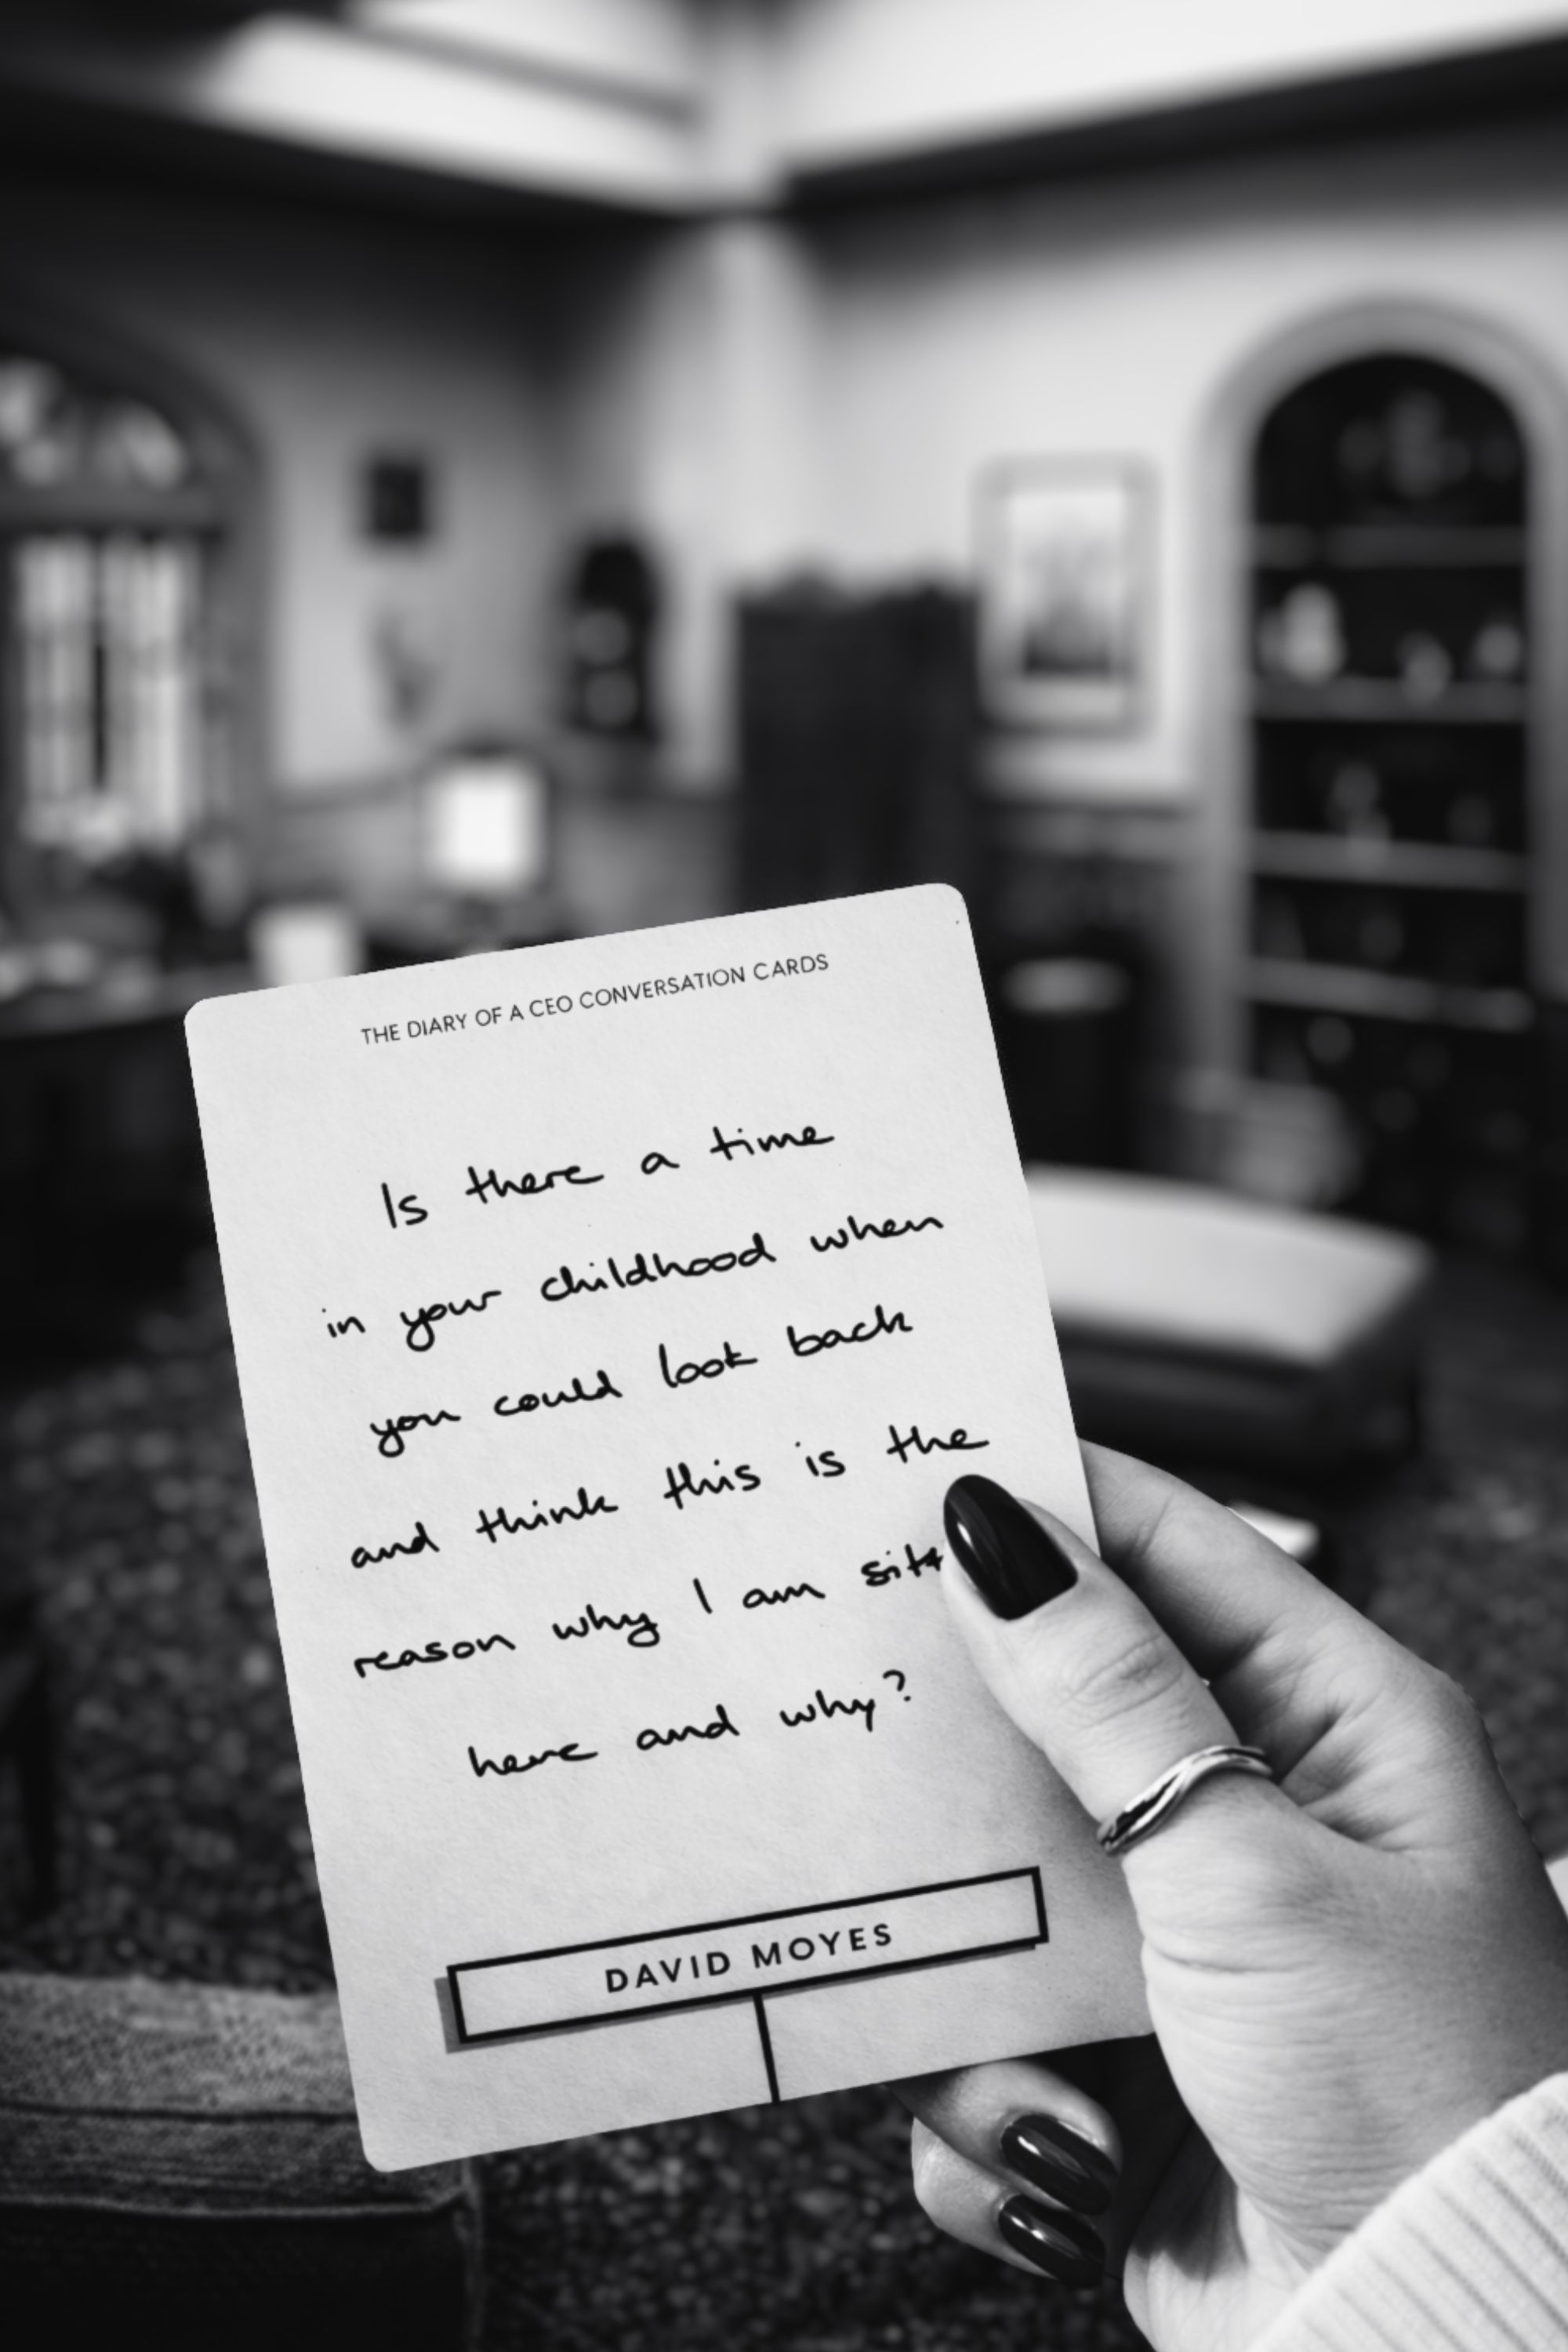 THE DIARY OF A CEO CONVERSATION CARDS
Is there a time
in your childhood when
you could look back
and think this is the
reason why I am
here and why?
DAVID MOYES